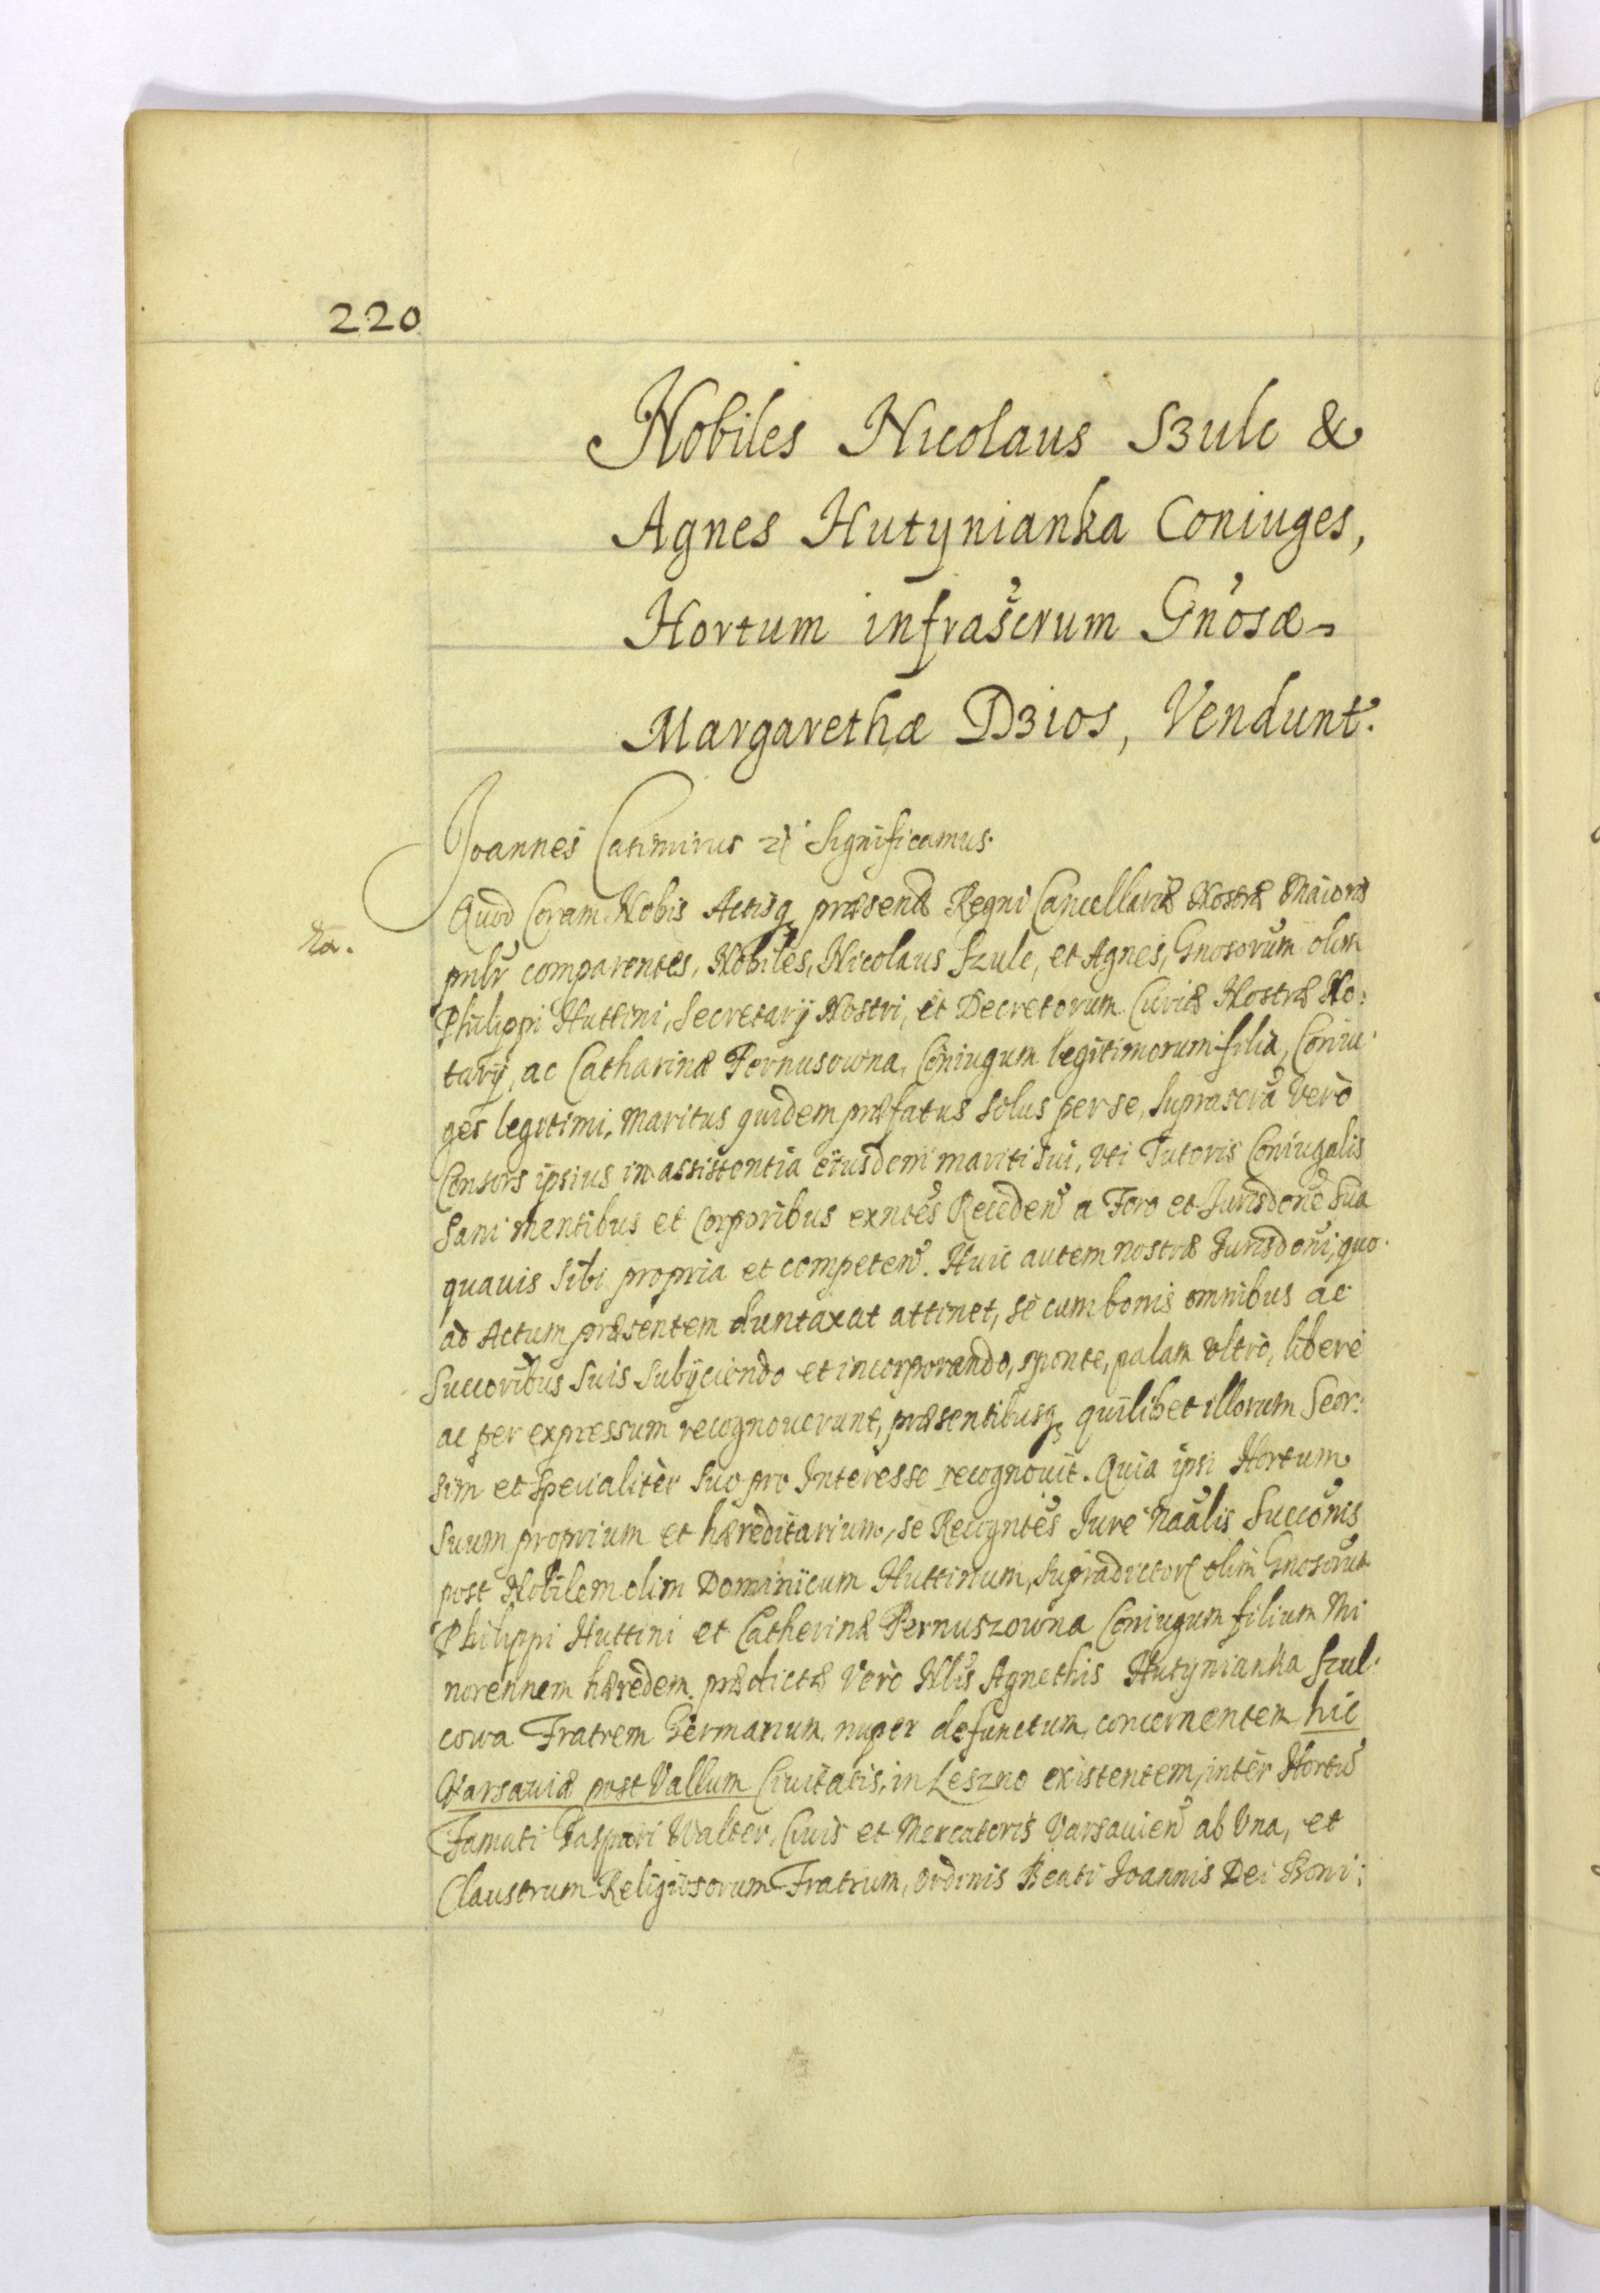 220
Nobiles Nicolaus Szulc &
Agnes Hutynianka Coniuges,
Hortum infrascrum Gnosæ
Margarethæ Dzios, Vendunt.
Joannes Casimirus Significamus.
Quod Coram Nobis Actisq præsend Regni Cancellariæ Nostræ Maioris
pnlr comparentes, Nobiles, Nicolaus Szulc, et Agnes, Gnosorum olim
Philippi Huttini, Secretarij Nostri, et Decretorum Curiæ Nostræ No:
tarij, ac Catharinæ Pernusowna, Coniugum legitimorum filia, Coniu:
ges legitimi, Maritus quidem præfatus solus per se, suprascra verò
Consors ipsius in assistentia eiusdem mariti sui, vti Tutoris Coniugalis
Sani mentibus et Corporibus exntes Receden a Foro et Jurisdone sua
quauis sibi propria et competen. Huic autem nostræ Jurisdoni, quo
ad Actum præsentem duntaxat attinet, se cum bonis omnibus ac
Succoribus suis subijciendo et incorporando, sponte, palam vltrò, liberè
ac per expressum recognouerunt, præsentibusq quilibet illorum Seor:
sim et specialitèr suo pro Interesse recognouit. Quia ipsi Hortum
suum proprium et hæreditarium, se Recogntes Jure Naalis Succonis
post Nobilem olim Dominicum Huttinum, supradictor olim Gnosorum
Philippi Huttini et Catherinæ Pernuszowna Coniugum filium Mi
norennem hæredem, prædictæ verò Nlis Agnethis Hutynianka Szul:
cowa Fratrem Germanum, nuper defunctum, concernentem, hic
Varsauiæ post Vallum Ciuitatis, in Leszno existentem, intèr Hortu
Famati Gaspari Walter, Ciuis et Mercatoris Varsauien ab Vna, et
Claustrum Religiosorum Fratrum, Ordinis Beati Joannis Dei Boni: